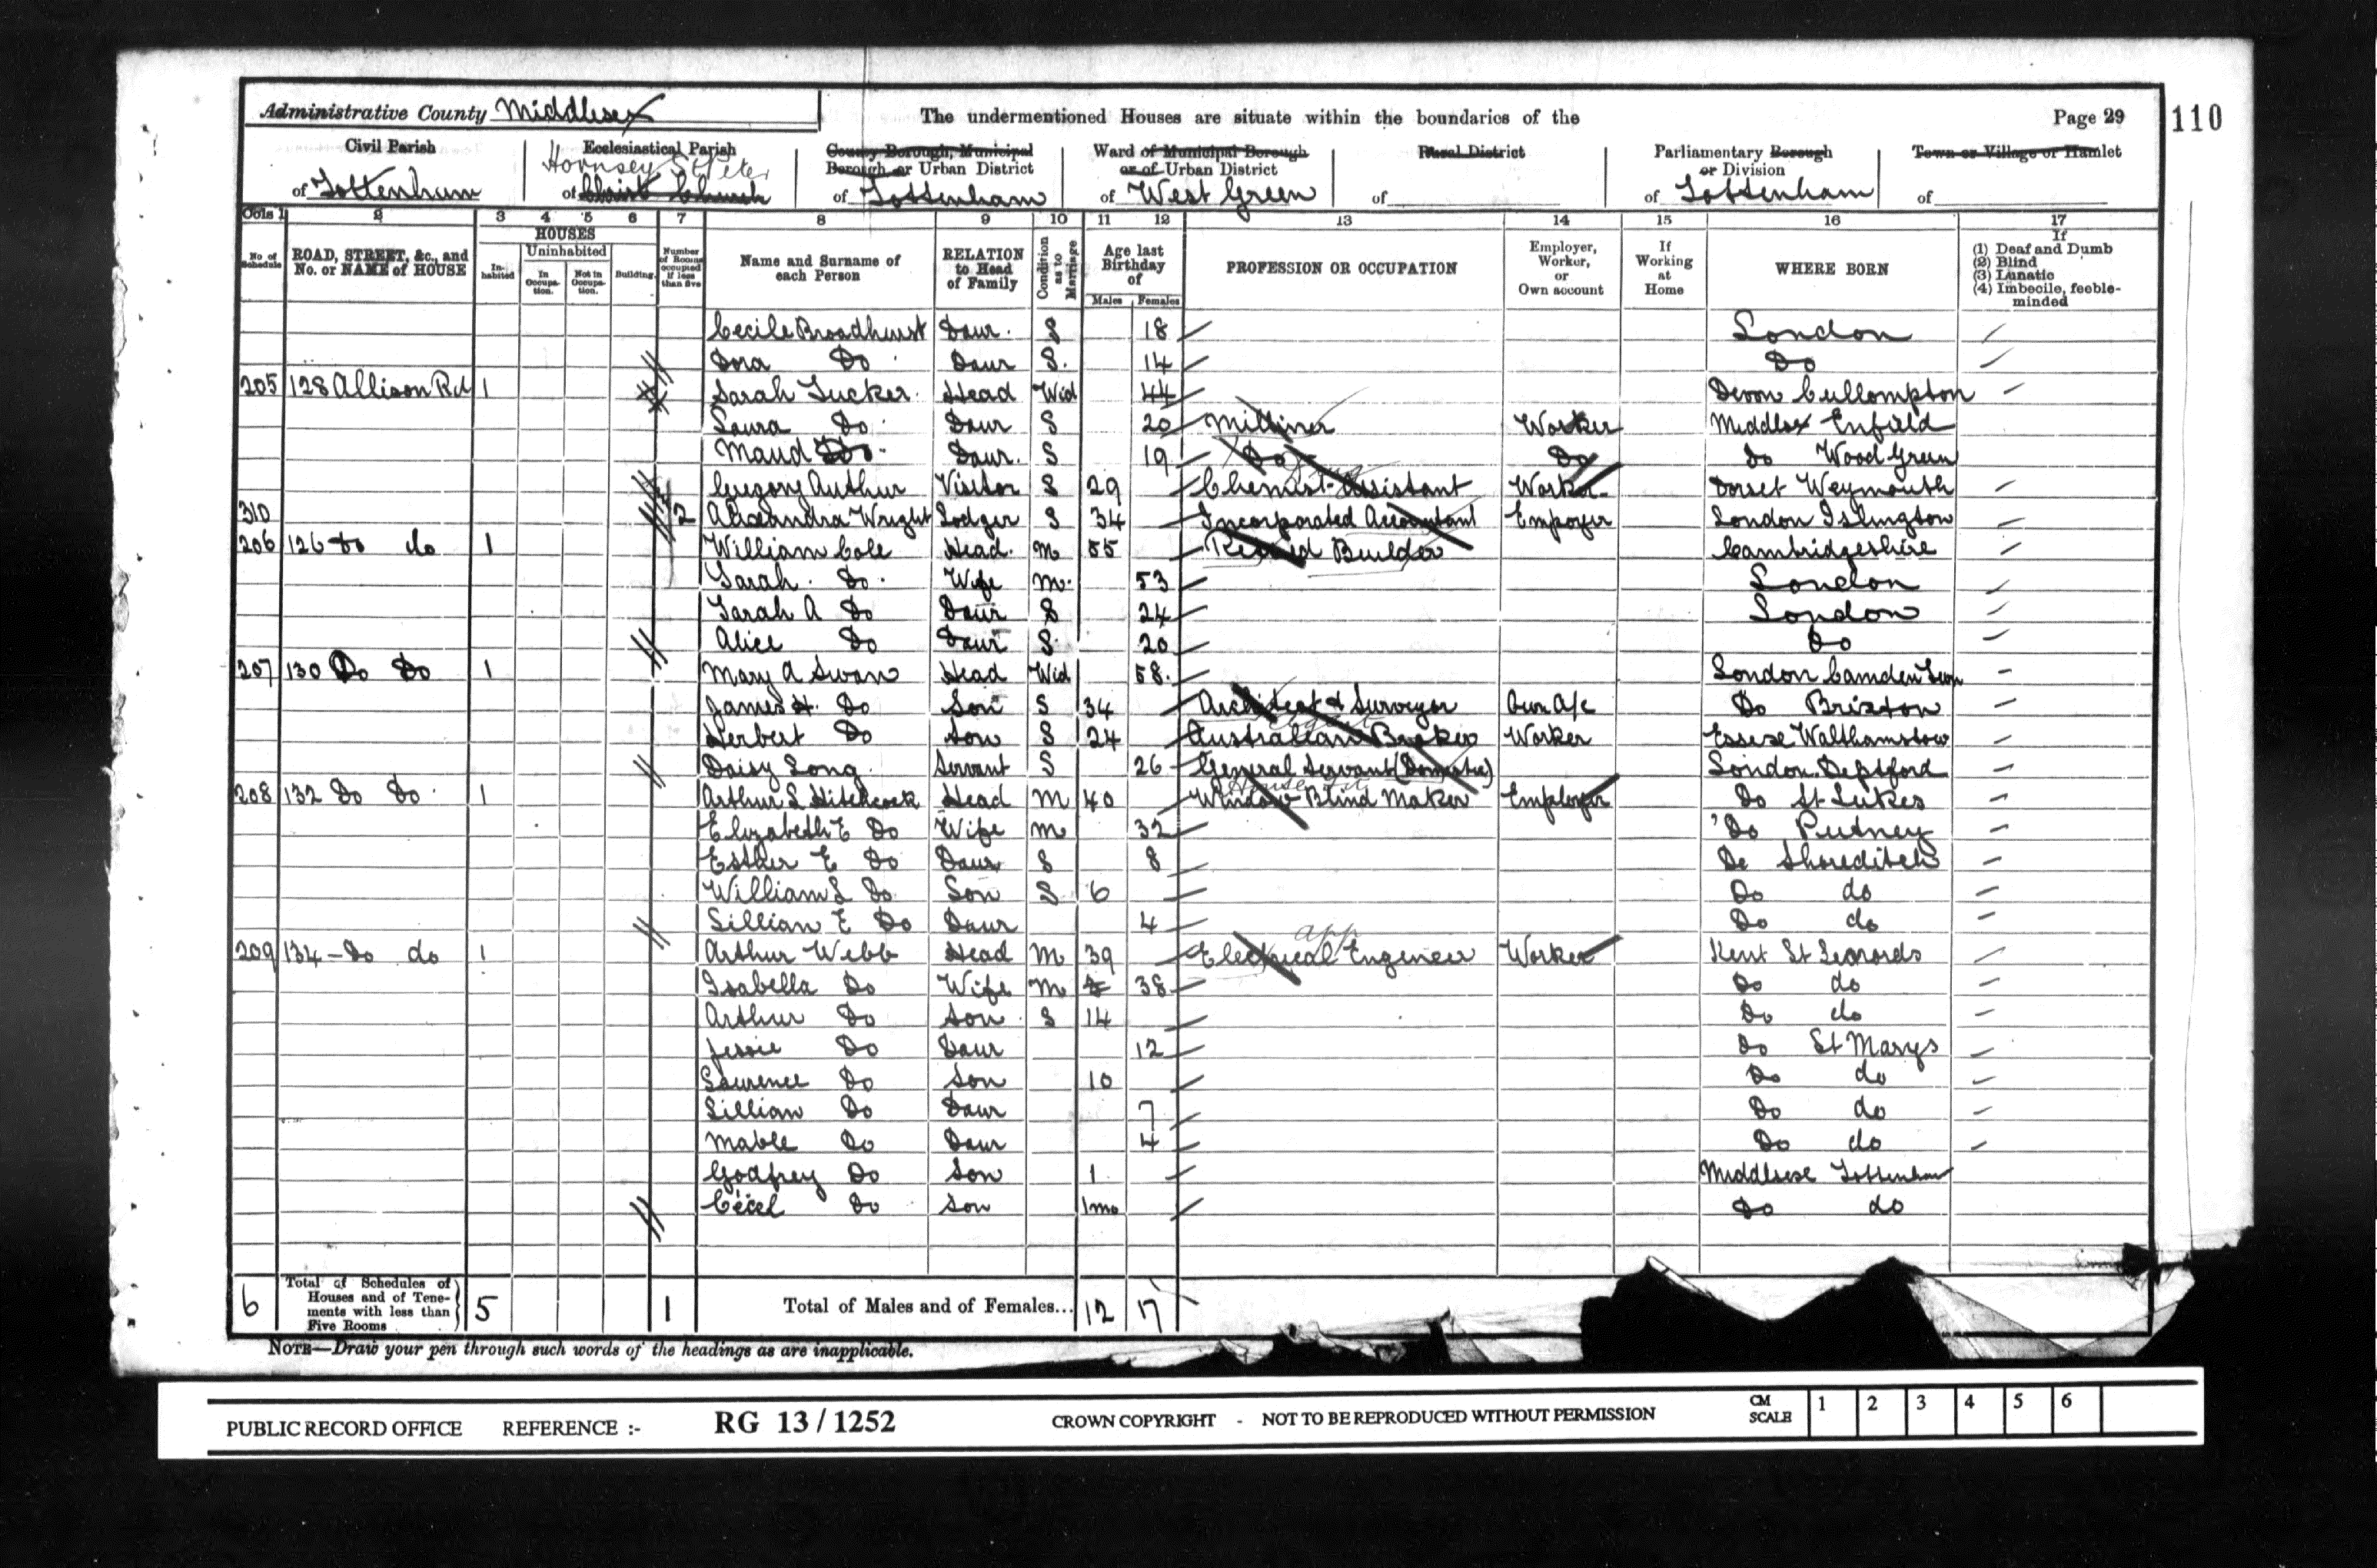 Administrative County Middlesex
The undermentioned Houses are situate within the boundaries of the
Page 29
110
Civil Parish
of Tottenham
Ecclesiastical Parish
Hornsey St Peter
of Christ Church
County Borough, Municipal Borough or Urban District
of Tottenham
Ward of Municipal Borough or of Urban District
of West Green
Rural District
of
Parliamentary Borough or Division
of Tottenham
Town or Village or Hamlet
of
Cols 1 2 3 4 5 6 7 8 9 10 11 12 13 14 15 16 17
No of Schedule
ROAD, STREET, &c., and No. or NAME of HOUSE
HOUSES
Inhabited
Uninhabited
In Occupation.
Not in Occupation.
Building.
Number of Rooms occupied if less than five
Name and Surname of each Person
RELATION to Head of Family
Condition as to Marriage
Age last Birthday of
Males
Females
PROFESSION OR OCCUPATION
Employer, Worker, or Own account
If Working at Home
WHERE BORN
If
(1) Deaf and Dumb
(2) Blind
(3) Lunatic
(4) Imbecile, feeble-minded
Cecile Broadhurst Daur. S 18 London
Dora Do Daur S. 14 Do
205 128 Allison Rd 1 Sarah Tucker. Head Wid 44 Devon Cullompton
Laura Do Daur S 20 Milliner Worker Middlesex Enfield
Maud Do Daur. S 19 Do Do Do Wood Green
Gregory Arthur Visitor S 29 Chemist Assistant Worker Dorset Weymouth
310 2 Alexandra Wright Lodger S 34 Incorporated Accountant Empoyer London Islington
206 126 do do 1 William Cole Head. M 55 Retired Builder Cambridgeshire
Sarah Do Wife M. 53 London
Sarah A Do Daur S 24 London
Alice Do Daur S 20 Do
207 130 Do Do 1 Mary A Swan Head Wid 58. London Camden Town
James H. Do Son S 34 Architect & Surveyor Own A/c Do Brixton
Herbert Do Son S 24 Australian Broker Worker Essex Walthamstow
Daisy Long Servant S 26 General Servant (Domestic) London Deptford
208 132 Do Do 1 Arthur L Hitchcock Head M 40 Window Blind Maker Employer Do St Lukes
Elizabeth E Do Wife M 32 Do Putney
Esther E Do Daur S 8 Do Shoreditch
William L Do Son S 6 Do do
Lillian E Do Daur 4 Do do
app
209 134 - Do do 1 Arthur Webb Head M 39 Electrical Engineer Worker Kent St Leonards
Isabella Do Wife M 38 Do do
Arthur Do Son S 14 Do do
Jessie Do Daur 12 Do St Marys
Laurence Do Son 10 Do do
Lillian Do Daur 7 Do do
Mable Do Daur 4 Do do
Godfrey Do Son 1 Middlesex Tottenham
Cecel Do Son 1mo Do do
6 Total of Schedules of Houses and of Tenements with less than Five Rooms 5 1 Total of Males and of Females... 12 17
NOTE—Draw your pen through such words of the headings as are inapplicable.
PUBLIC RECORD OFFICE REFERENCE :- RG 13 / 1252 CROWN COPYRIGHT - NOT TO BE REPRODUCED WITHOUT PERMISSION CM SCALE 1 2 3 4 5 6